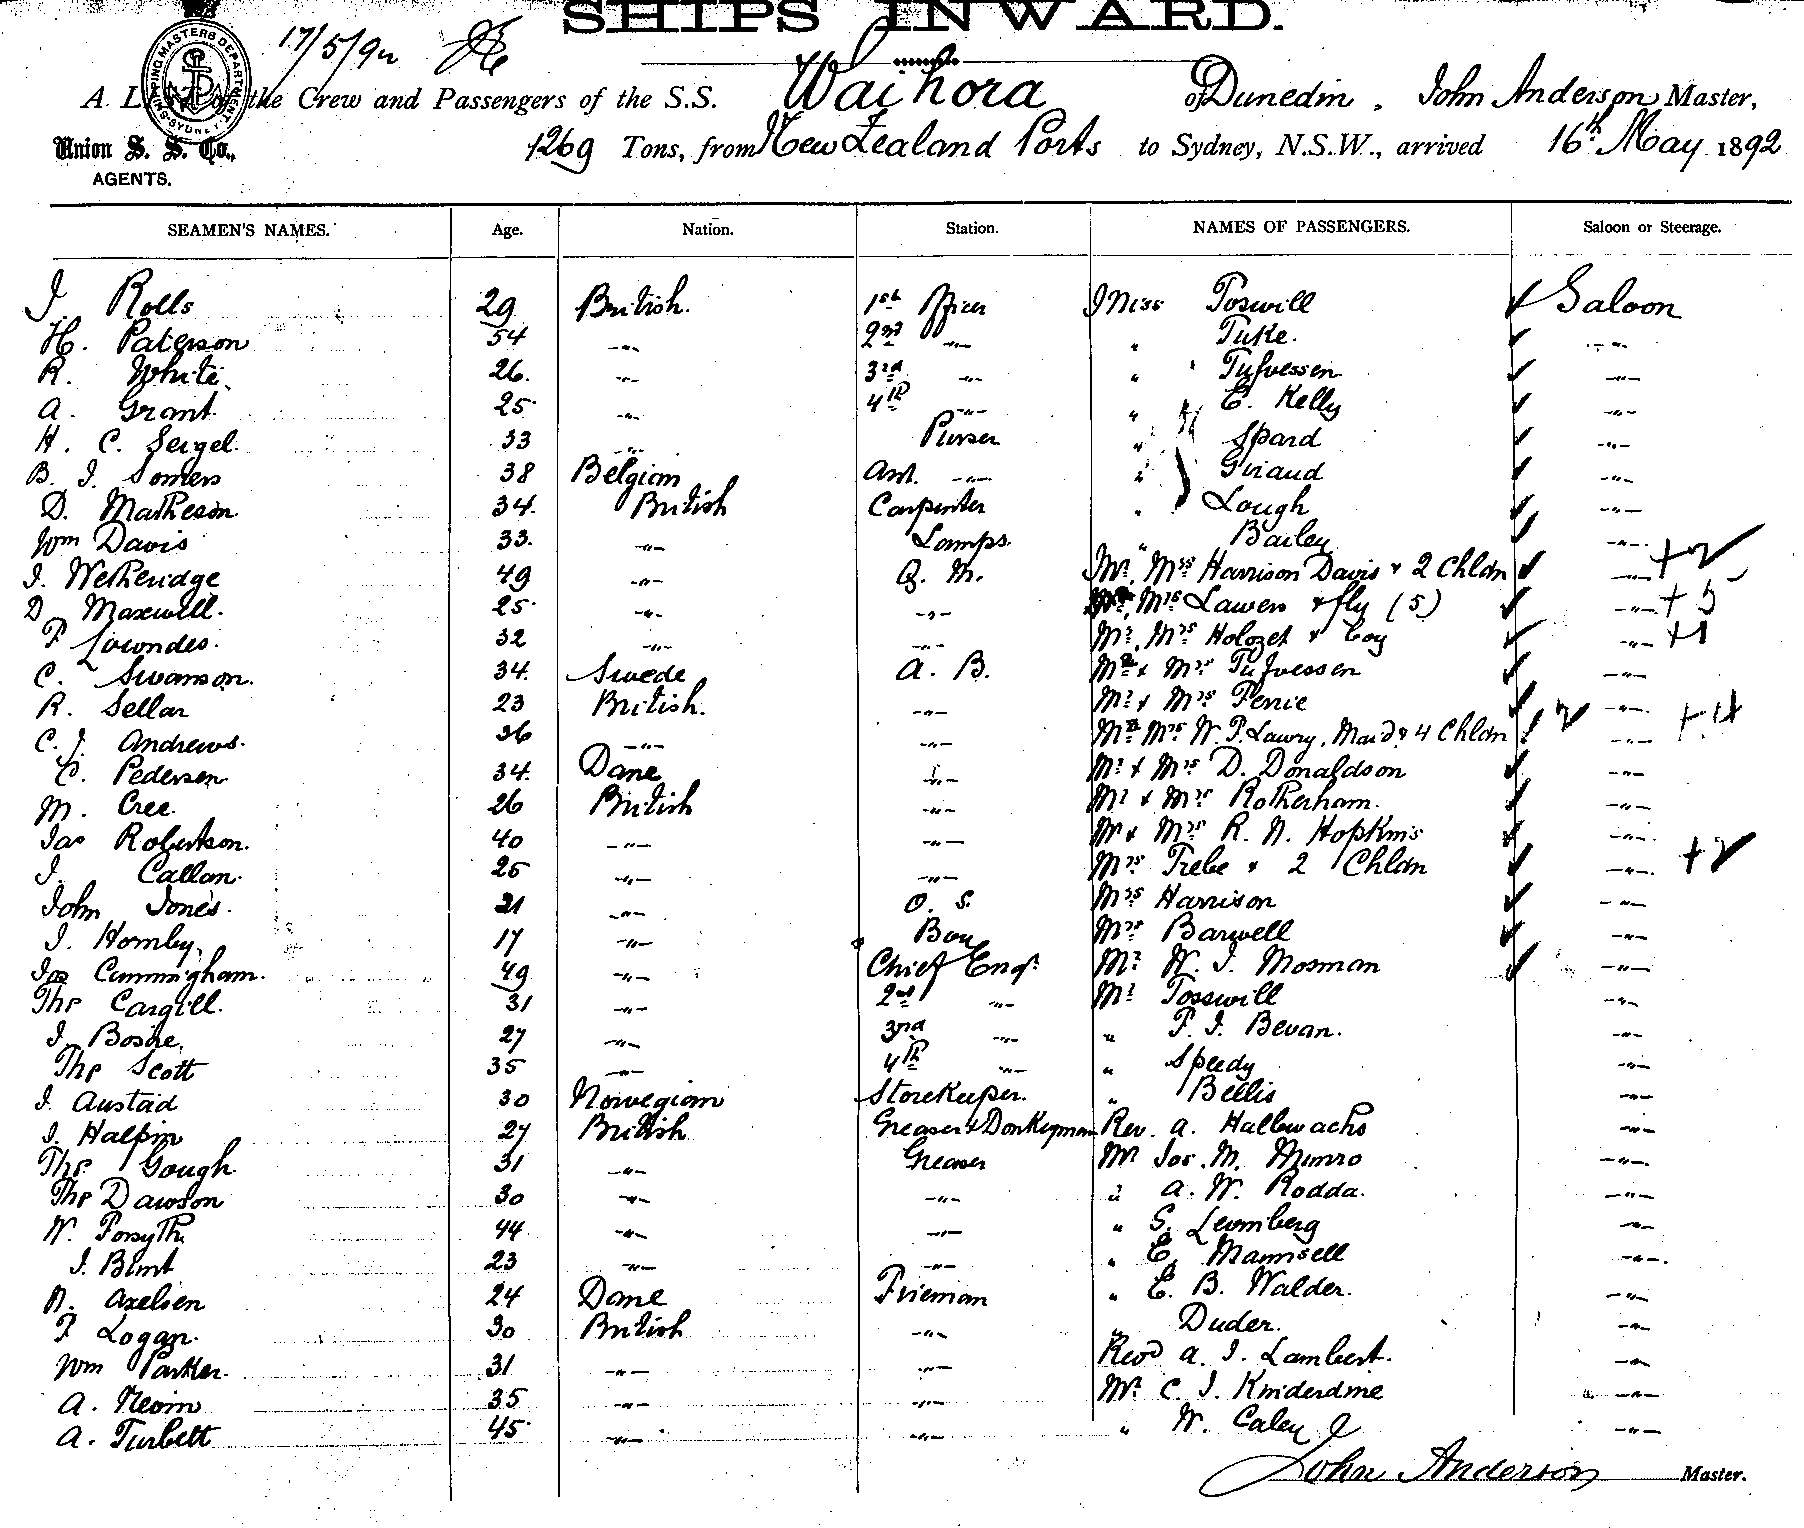 SHIPS INWARD.
17/5/92
SHIPPING MASTERS DEPARTMENT SYDNEY
A LIST of the Crew and Passengers of the S.S. Waihora of Dunedin, John Anderson Master,
Union S. S. Co., AGENTS.
1269 Tons, from New Zealand Ports to Sydney, N.S.W., arrived 16th May 1892
SEAMEN'S NAMES. Age. Nation. Station. NAMES OF PASSENGERS. Saloon or Steerage.
J. Rolls 29 British. 1st Officer Miss Toswill Saloon
H. Paterson 54 -"- 2nd -"- " Tuke. -"-
R. White 26. -"- 3rd -"- " Tufvessen -"-
A. Grant 25 -"- 4th -"- " E. Kelly -"-
H. C. Seigel 33 -"- Purser " Spard -"-
B. J. Somers 38 Belgian Asst. -"- " Giraud -"-
D. Matheson 34. British Carpenter " Lough -"-
Wm Davis 33. -"- Lamps " Bailey -"-
J. Wetheridge 49 -"- Q. M. Mr. Mrs Harrison Davis & 2 Chldn -"- +2
D Maxwell. 25 -"- -"- Mr. Mrs Lawers & fly (5) -"- +5
F Lowndes. 32 -"- -"- Mr. Mrs Holozet & Boy -"- +1
C. Swanson. 34. Swede A. B. Mr & Mrs Tufvessen -"-
R. Sellar 23 British. -"- Mr & Mrs Penie -"-
C. J. Andrews. 36 -"- -"- Mr Mrs W. P. Lawry, Maid & 4 Chldn -"- +4
C. Pedersen 34. Dane -"- Mr & Mrs D. Donaldson -"-
M. Cree. 26 British -"- Mr & Mrs Rotherham. -"-
Jas Robertson. 40 -"- -"- Mr & Mrs R. N. Hopkins -"-
J. Callan. 25 -"- -"- Mrs Trebe & 2 Chldn -"- +2
John Jones. 21 -"- O. S. Mrs Harrison -"-
J. Hornby. 17 -"- Boy Mrs Barwell -"-
Jas Cunningham. 49 -"- Chief Engr. Mr W. J. Mosman -"-
Thos Cargill. 31 -"- 2nd -"- Mr Tosswill -"-
J. Boshe. 27 -"- 3rd -"- " F. J. Bevan. -"-
Thos Scott 35 -"- 4th -"- " Speedy -"-
J. Austad 30 Norwegian Storekeeper. " Bellis -"-
J. Halpin 27 British Greaser & Donkeyman Rev. A. Hallewachs -"-
Thos. Gough 31 -"- Greaser Mr Jos. M. Munro -"-
Thos Dawson 30 -"- -"- " A. W. Rodda. -"-
W. Forsyth 44 -"- -"- " S. Leomberg -"-
J. Bint 23 -"- -"- " E. Mannsell -"-
N. Axelsen 24 Dane Fireman " E. B. Walder. -"-
F. Logan. 30 British -"- " Duder. -"-
Wm Parker. 31 -"- -"- Revd A. J. Lambert. -"-
A. Nevin 35 -"- -"- Mr. C. J. Kinderdine -"-
A. Turbett 45 -"- -"- " W. Caley -"-
John Anderson Master.